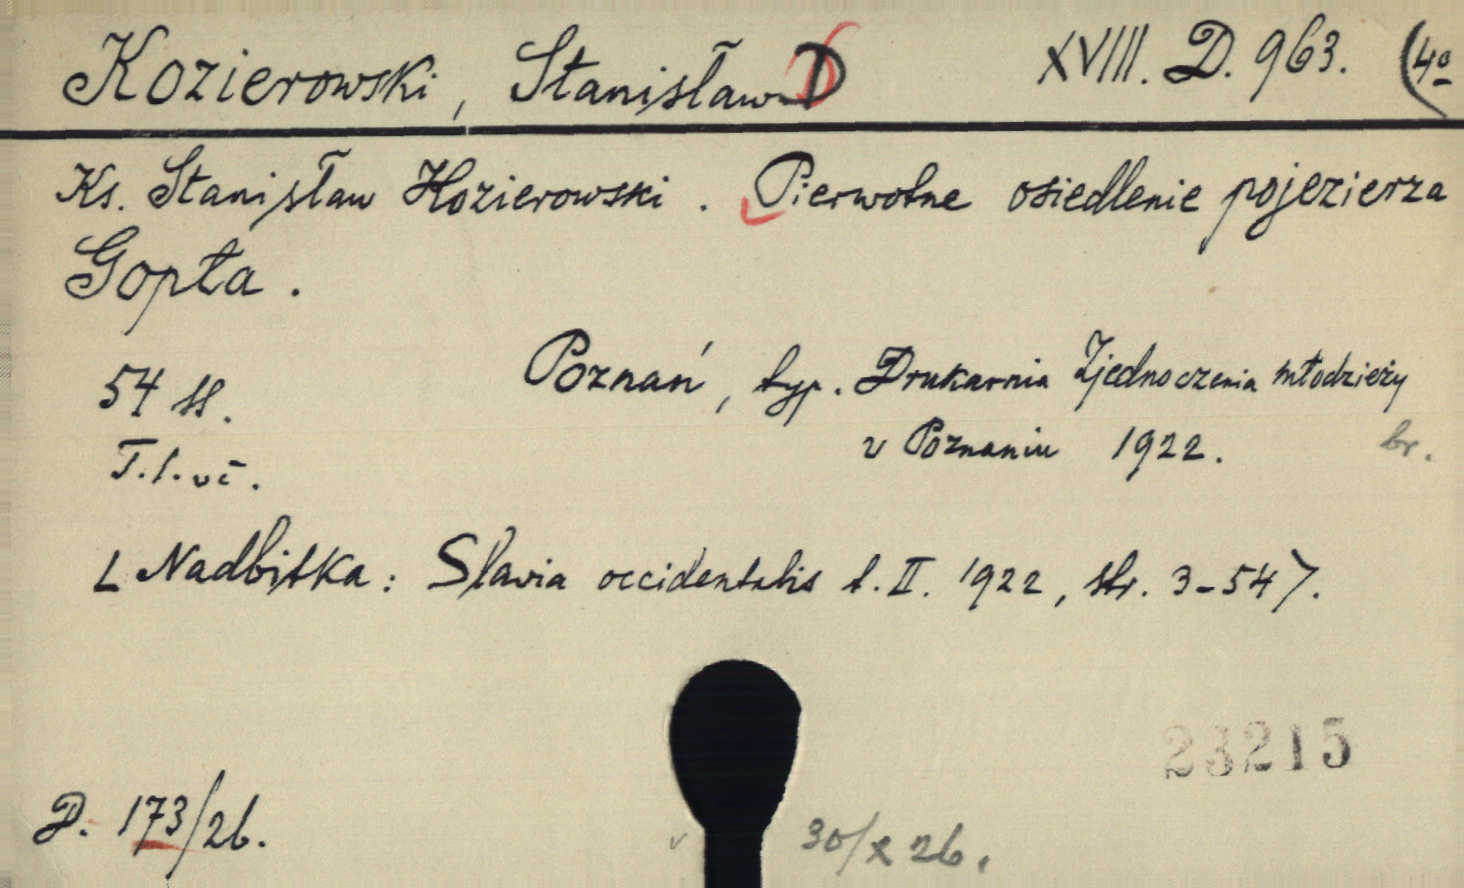 Kozierowski, Stanisław D XVIII. D. 963. (4º
Ks. Stanisław Kozierowski. Pierwotne osiedlenie pojezierza
Gopła.
54 ss. Poznań, typ. Drukarnia Zjednoczenia młodzieży
v Poznaniu 1922. br.
T.l.vč.
L Nadbitka: Slavia occidentalis t. II. 1922, str. 3-54>.
23215
D. 173/26.
30/X 26.